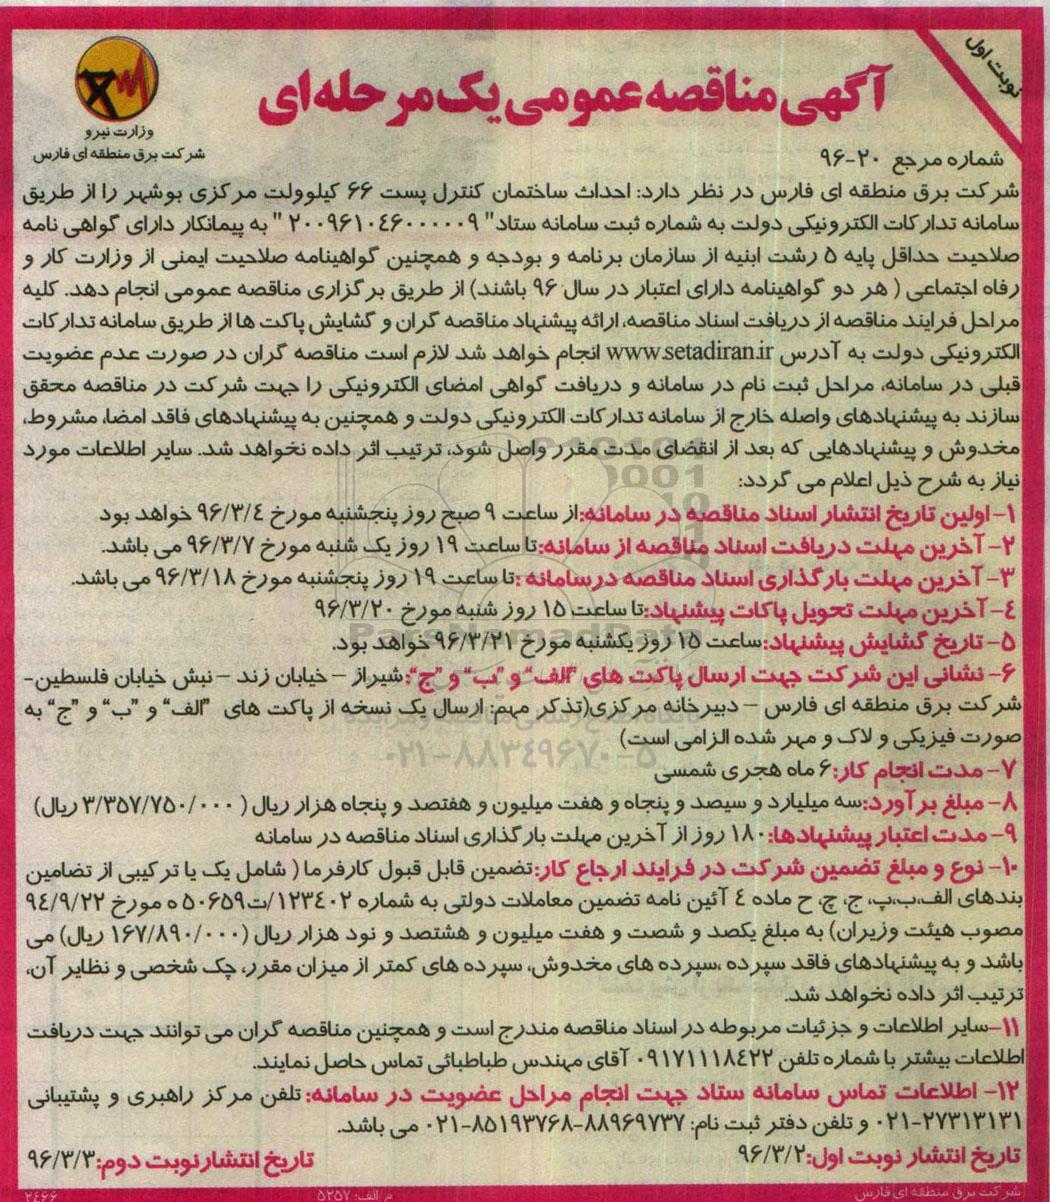 نوبت اول
آگهی مناقصه عمومی یک مرحله ای
وزارت نیرو
شرکت برق منطقه ای فارس
شماره مرجع ۲۰-۹۶
شرکت برق منطقه ای فارس در نظر دارد: احداث ساختمان کنترل پست ۶۶ کیلوولت مرکزی بوشهر را از طریق
سامانه تدارکات الکترونیکی دولت به شماره ثبت سامانه ستاد" ۲۰۰۹۶۱۰۴۶۰۰۰۰۰۹ " به پیمانکار دارای گواهی نامه
صلاحیت حداقل پایه ۵ رشت ابنیه از سازمان برنامه و بودجه و همچنین گواهینامه صلاحیت ایمنی از وزارت کار و
رفاه اجتماعی ( هر دو گواهینامه دارای اعتبار در سال ۹۶ باشند) از طریق برگزاری مناقصه عمومی انجام دهد. کلیه
مراحل فرایند مناقصه از دریافت اسناد مناقصه، ارائه پیشنهاد مناقصه گران و گشایش پاکت ها از طریق سامانه تدارکات
الکترونیکی دولت به آدرس www.setadiran.ir انجام خواهد شد لازم است مناقصه گران در صورت عدم عضویت
قبلی در سامانه، مراحل ثبت نام در سامانه و دریافت گواهی امضای الکترونیکی را جهت شرکت در مناقصه محقق
سازند به پیشنهادهای واصله خارج از سامانه تدارکات الکترونیکی دولت و همچنین به پیشنهادهای فاقد امضا، مشروط،
مخدوش و پیشنهادهایی که بعد از انقضای مدت مقرر واصل شود، ترتیب اثر داده نخواهد شد. سایر اطلاعات مورد
نیاز به شرح ذیل اعلام می گردد:
۱- اولین تاریخ انتشار اسناد مناقصه در سامانه:از ساعت ۹ صبح روز پنجشنبه مورخ ۹۶/۳/۴ خواهد بود
۲- آخرین مهلت دریافت اسناد مناقصه از سامانه:تا ساعت ۱۹ روز یک شنبه مورخ ۹۶/۳/۷ می باشد.
۳- آخرین مهلت بارگذاری اسناد مناقصه درسامانه :تا ساعت ۱۹ روز پنجشنبه مورخ ۹۶/۳/۱۸ می باشد.
۴- آخرین مهلت تحویل پاکات پیشنهاد:تا ساعت ۱۵ روز شنبه مورخ ۹۶/۳/۲۰
۵- تاریخ گشایش پیشنهاد:ساعت ۱۵ روز یکشنبه مورخ ۹۶/۳/۲۱ خواهد بود.
۶- نشانی این شرکت جهت ارسال پاکت های "الف" و "ب" و "ج":شیراز – خیابان زند – نبش خیابان فلسطین-
شرکت برق منطقه ای فارس – دبیرخانه مرکزی(تذکر مهم: ارسال یک نسخه از پاکت های "الف" و "ب" و "ج" به
صورت فیزیکی و لاک و مهر شده الزامی است)
۰۲۱-۸۸۳۴۹۶۷۰-۵
۷- مدت انجام کار:۶ ماه هجری شمسی
۸- مبلغ برآورد:سه میلیارد و سیصد و پنجاه و هفت میلیون و هفتصد و پنجاه هزار ریال ( ۳/۳۵۷/۷۵۰/۰۰۰ ریال)
۹- مدت اعتبار پیشنهادها: ۱۸۰ روز از آخرین مهلت بارگذاری اسناد مناقصه در سامانه
۱۰- نوع و مبلغ تضمین شرکت در فرایند ارجاع کار:تضمین قابل قبول کارفرما ( شامل یک یا ترکیبی از تضامین
بندهای الف،ب،پ، ج، چ، ح ماده ۴ آئین نامه تضمین معاملات دولتی به شماره ۱۲۳۴۰۲/ت۵۰۶۵۹ ه مورخ ۹۴/۹/۲۲
مصوب هیئت وزیران) به مبلغ یکصد و شصت و هفت میلیون و هشتصد و نود هزار ریال (۱۶۷/۸۹۰/۰۰۰ ریال) می
باشد و به پیشنهادهای فاقد سپرده ،سپرده های مخدوش، سپرده های کمتر از میزان مقرر، چک شخصی و نظایر آن،
ترتیب اثر داده نخواهد شد.
۱۱-سایر اطلاعات و جزئیات مربوطه در اسناد مناقصه مندرج است و همچنین مناقصه گران می توانند جهت دریافت
اطلاعات بیشتر با شماره تلفن ۰۹۱۷۱۱۱۸۴۲۲ آقای مهندس طباطبائی تماس حاصل نمایند.
۱۲- اطلاعات تماس سامانه ستاد جهت انجام مراحل عضویت در سامانه: تلفن مرکز راهبری و پشتیبانی
۰۲۱-۲۷۳۱۳۱۳۱ و تلفن دفتر ثبت نام: ۸۸۹۶۹۷۳۷-۸۵۱۹۳۷۶۸-۰۲۱ می باشد.
تاریخ انتشار نوبت اول:۹۶/۳/۲ تاریخ انتشار نوبت دوم:۹۶/۳/۳
شرکت برق منطقه ای فارس م/الف: ۵۲۵۷ ۲۴۶۶